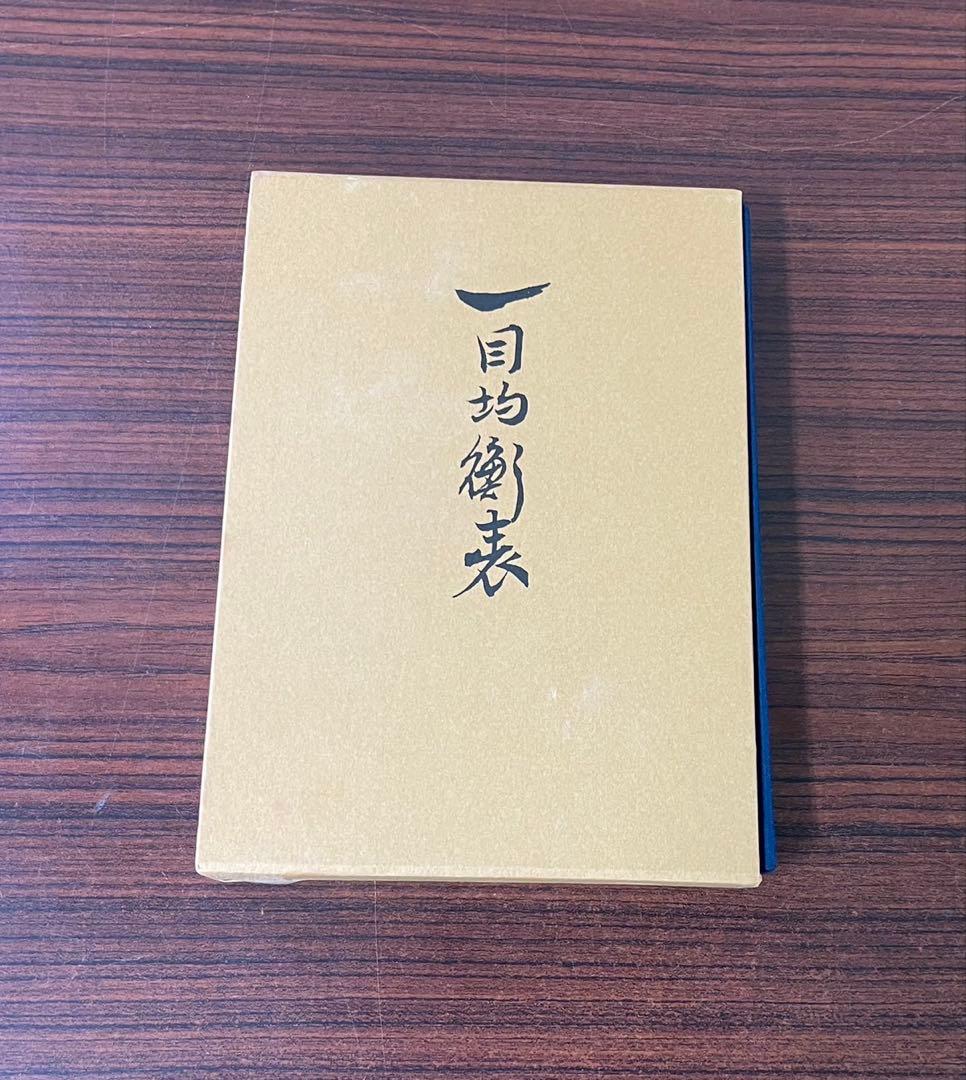 一目均衡表